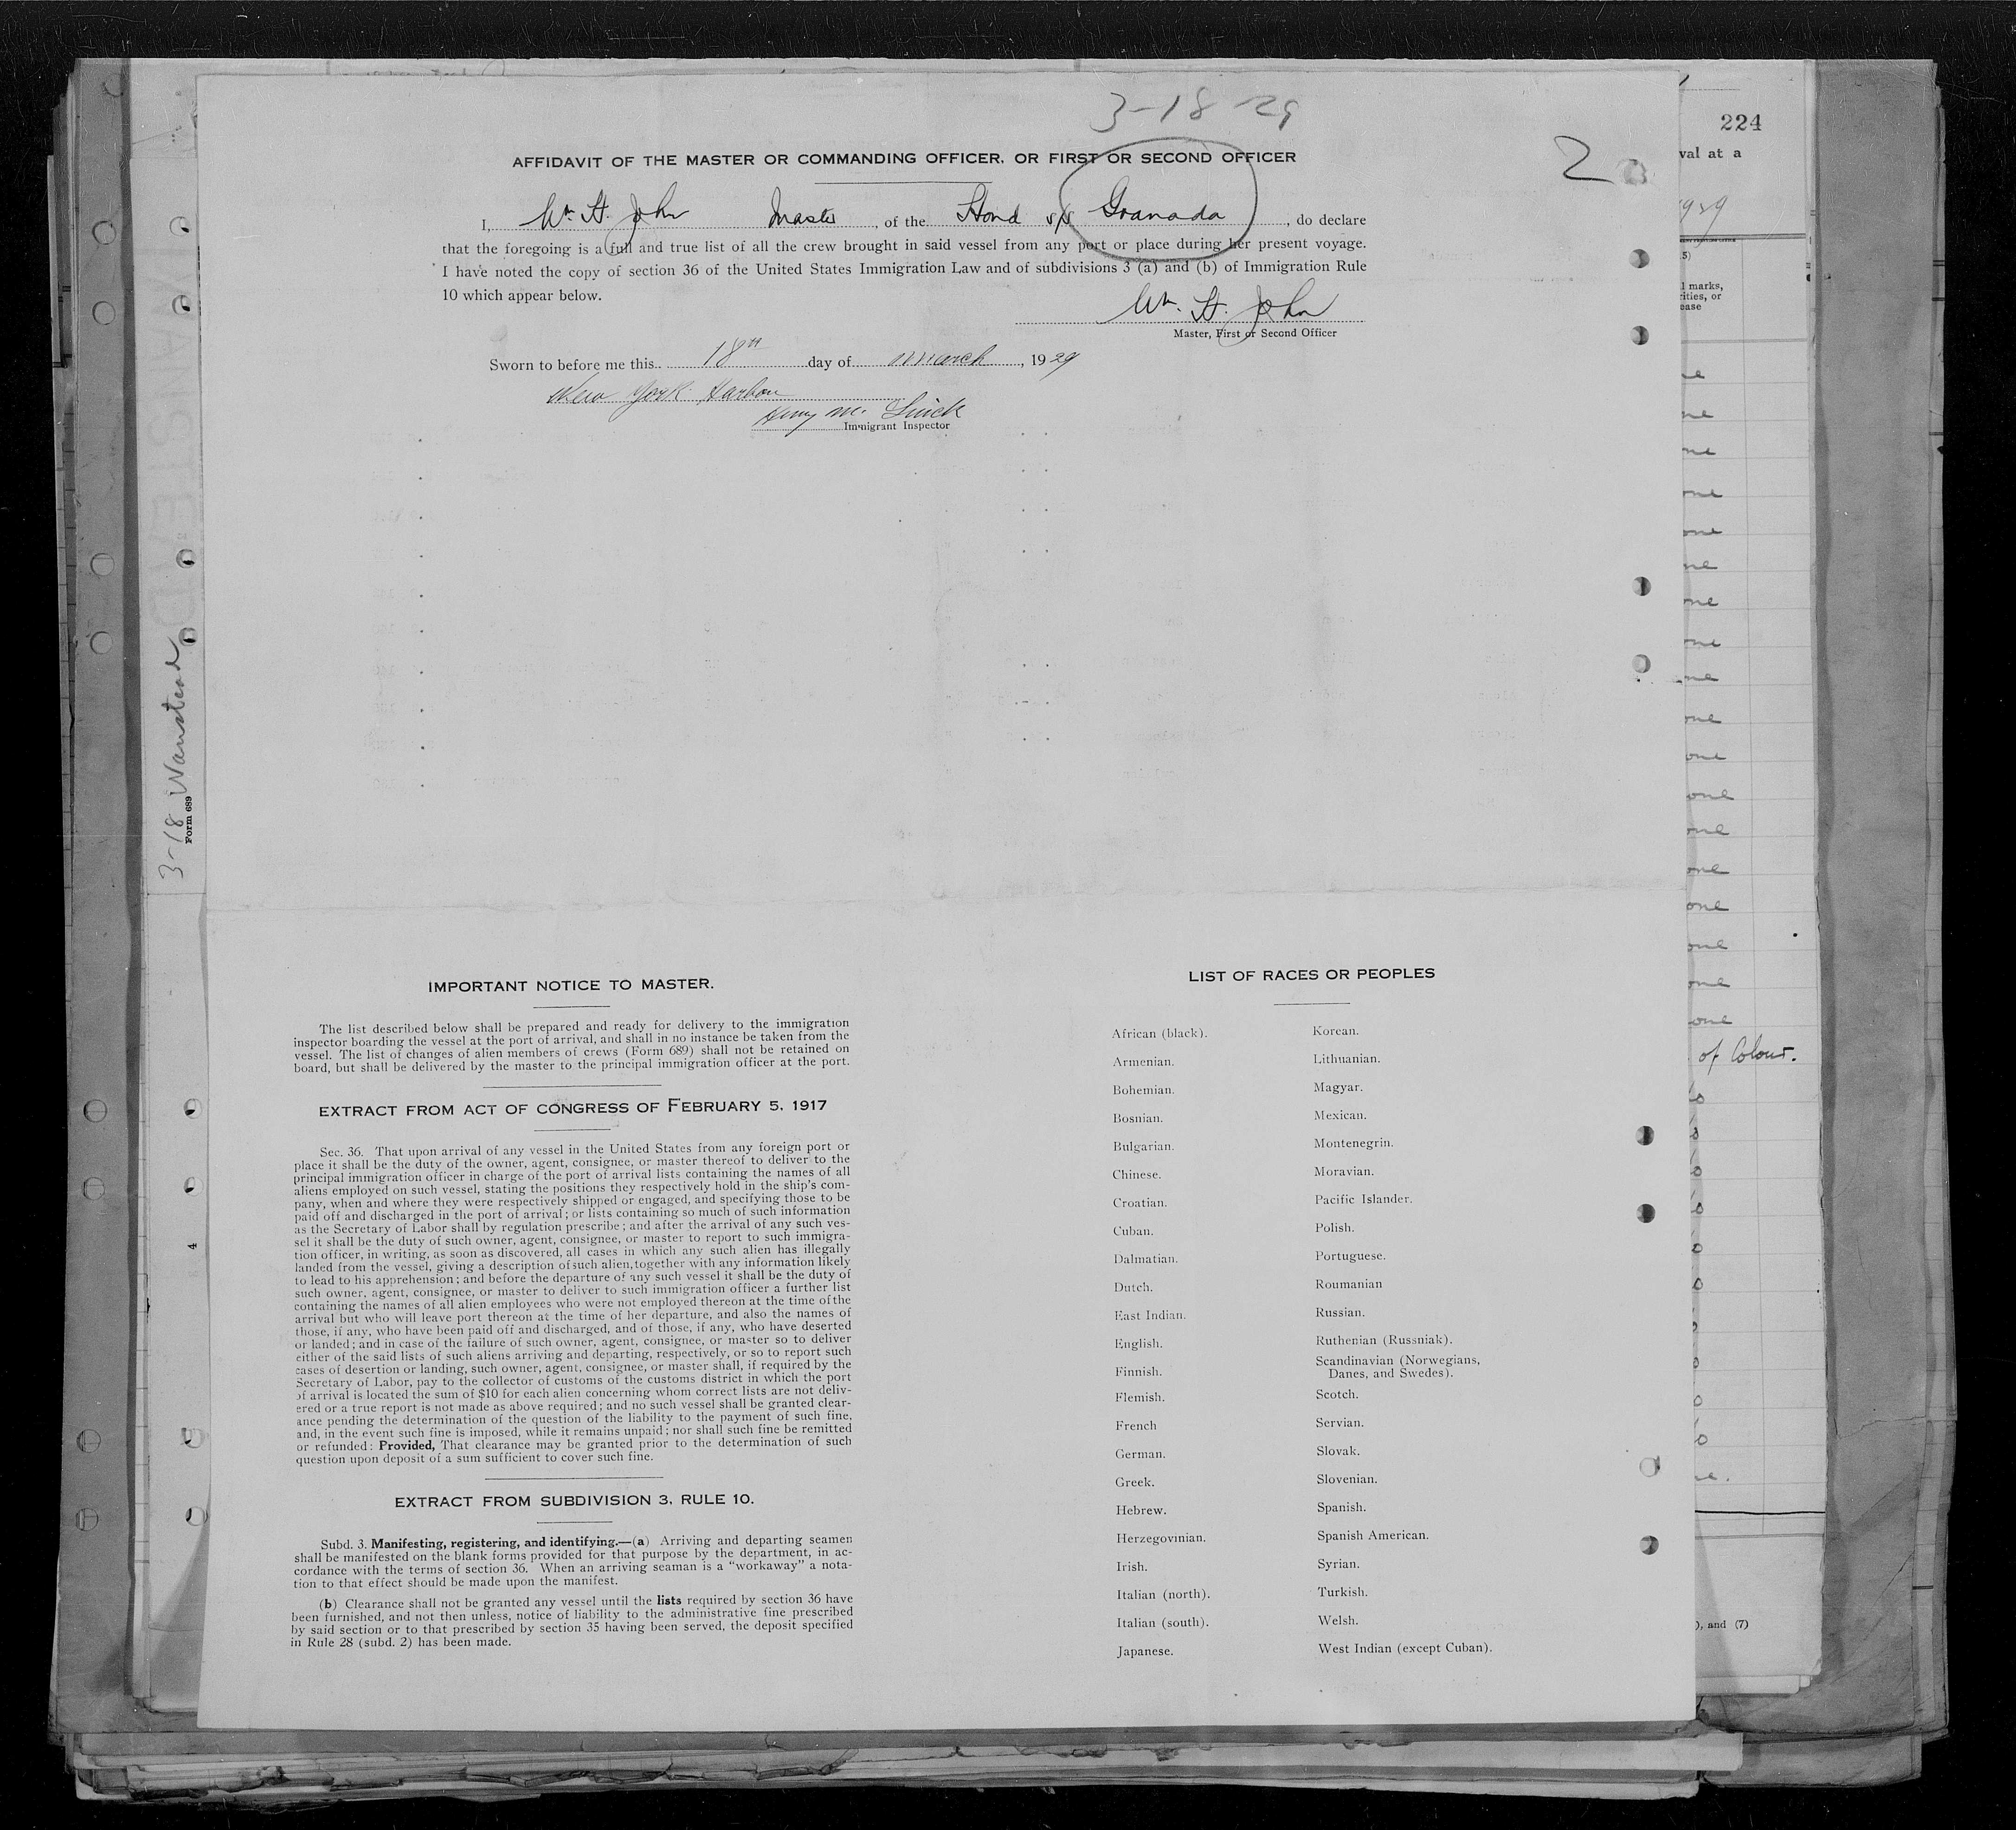 3-18-29
224
AFFIDAVIT OF THE MASTER OR COMMANDING OFFICER, OR FIRST OR SECOND OFFICER
2
val at a
I, Wm. H. John Master, of the Hond s/s Granada, do declare
that the foregoing is a full and true list of all the crew brought in said vessel from any port or place during her present voyage.
I have noted the copy of section 36 of the United States Immigration Law and of subdivisions 3 (a) and (b) of Immigration Rule
10 which appear below.
Wm. H. John
Master, First or Second Officer
Sworn to before me this 18th day of March, 1929
New York Harbor
Henry M.
Immigrant Inspector
3-18 Wanstead
Form 689
4
IMPORTANT NOTICE TO MASTER.
The list described below shall be prepared and ready for delivery to the immigration
inspector boarding the vessel at the port of arrival, and shall in no instance be taken from the
vessel. The list of changes of alien members of crews (Form 689) shall not be retained on
board, but shall be delivered by the master to the principal immigration officer at the port.
EXTRACT FROM ACT OF CONGRESS OF FEBRUARY 5, 1917
Sec. 36. That upon arrival of any vessel in the United States from any foreign port or
place it shall be the duty of the owner, agent, consignee, or master thereof to deliver to the
principal immigration officer in charge of the port of arrival lists containing the names of all
aliens employed on such vessel, stating the positions they respectively hold in the ship's com-
pany, when and where they were respectively shipped or engaged, and specifying those to be
paid off and discharged in the port of arrival; or lists containing so much of such information
as the Secretary of Labor shall by regulation prescribe; and after the arrival of any such ves-
sel it shall be the duty of such owner, agent, consignee, or master to report to such immigra-
tion officer, in writing, as soon as discovered, all cases in which any such alien has illegally
landed from the vessel, giving a description of such alien, together with any information likely
to lead to his apprehension; and before the departure of any such vessel it shall be the duty of
such owner, agent, consignee, or master to deliver to such immigration officer a further list
containing the names of all alien employees who were not employed thereon at the time of the
arrival but who will leave port thereon at the time of her departure, and also the names of
those, if any, who have been paid off and discharged, and of those, if any, who have deserted
or landed; and in case of the failure of such owner, agent, consignee, or master so to deliver
either of the said lists of such aliens arriving and departing, respectively, or so to report such
cases of desertion or landing, such owner, agent, consignee, or master shall, if required by the
Secretary of Labor, pay to the collector of customs of the customs district in which the port
of arrival is located the sum of $10 for each alien concerning whom correct lists are not deliv-
ered or a true report is not made as above required; and no such vessel shall be granted clear-
ance pending the determination of the question of the liability to the payment of such fine,
and, in the event such fine is imposed, while it remains unpaid; nor shall such fine be remitted
or refunded: Provided, That clearance may be granted prior to the determination of such
question upon deposit of a sum sufficient to cover such fine.
EXTRACT FROM SUBDIVISION 3, RULE 10.
Subd. 3. Manifesting, registering, and identifying.—(a) Arriving and departing seamen
shall be manifested on the blank forms provided for that purpose by the department, in ac-
cordance with the terms of section 36. When an arriving seaman is a "workaway" a nota-
tion to that effect should be made upon the manifest.
(b) Clearance shall not be granted any vessel until the lists required by section 36 have
been furnished, and not then unless, notice of liability to the administrative fine prescribed
by said section or to that prescribed by section 35 having been served, the deposit specified
in Rule 28 (subd. 2) has been made.
LIST OF RACES OR PEOPLES
African (black).
Armenian.
Bohemian.
Bosnian.
Bulgarian.
Chinese.
Croatian.
Cuban.
Dalmatian.
Dutch.
East Indian.
English.
Finnish.
Flemish.
French
German.
Greek.
Hebrew.
Herzegovinian.
Irish.
Italian (north).
Italian (south).
Japanese.
Korean.
Lithuanian.
Magyar.
Mexican.
Montenegrin.
Moravian.
Pacific Islander.
Polish.
Portuguese.
Roumanian
Russian.
Ruthenian (Russniak).
Scandinavian (Norwegians,
Danes, and Swedes).
Scotch.
Servian.
Slovak.
Slovenian.
Spanish.
Spanish American.
Syrian.
Turkish.
Welsh.
West Indian (except Cuban).
l marks,
rities, or
ease
of Colour.
), and (7)